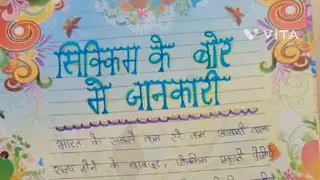 VITA
सिक्किम के बोर
मे जानकारी
भारत के सबसे कम से कम आबादी वाला
राज्य होने के बावजूद, सिक्किम